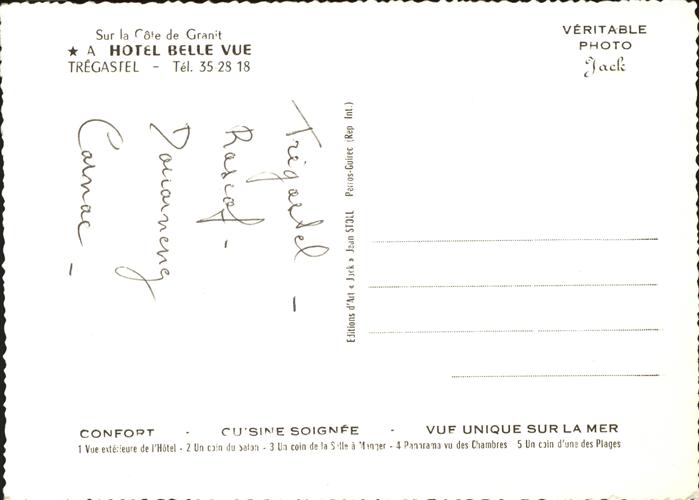 Sur la Côte de Granit
★ A HOTEL BELLE VUE
TRÉGASTEL - Tél. 35-28 18
VÉRITABLE
PHOTO
Jack
Trégastel -
Roscof -
Douarnenez
Carnac -
Editions d'Art « Jack » Jean STOLL Perros-Guirec (Rep. Int.)
CONFORT - CUISINE SOIGNÉE - VUE UNIQUE SUR LA MER
1 Vue extérieure de l'Hôtel - 2 Un coin du salon - 3 Un coin de la Salle à Manger - 4 Panorama vu des Chambres 5 Un coin d'une des Plages